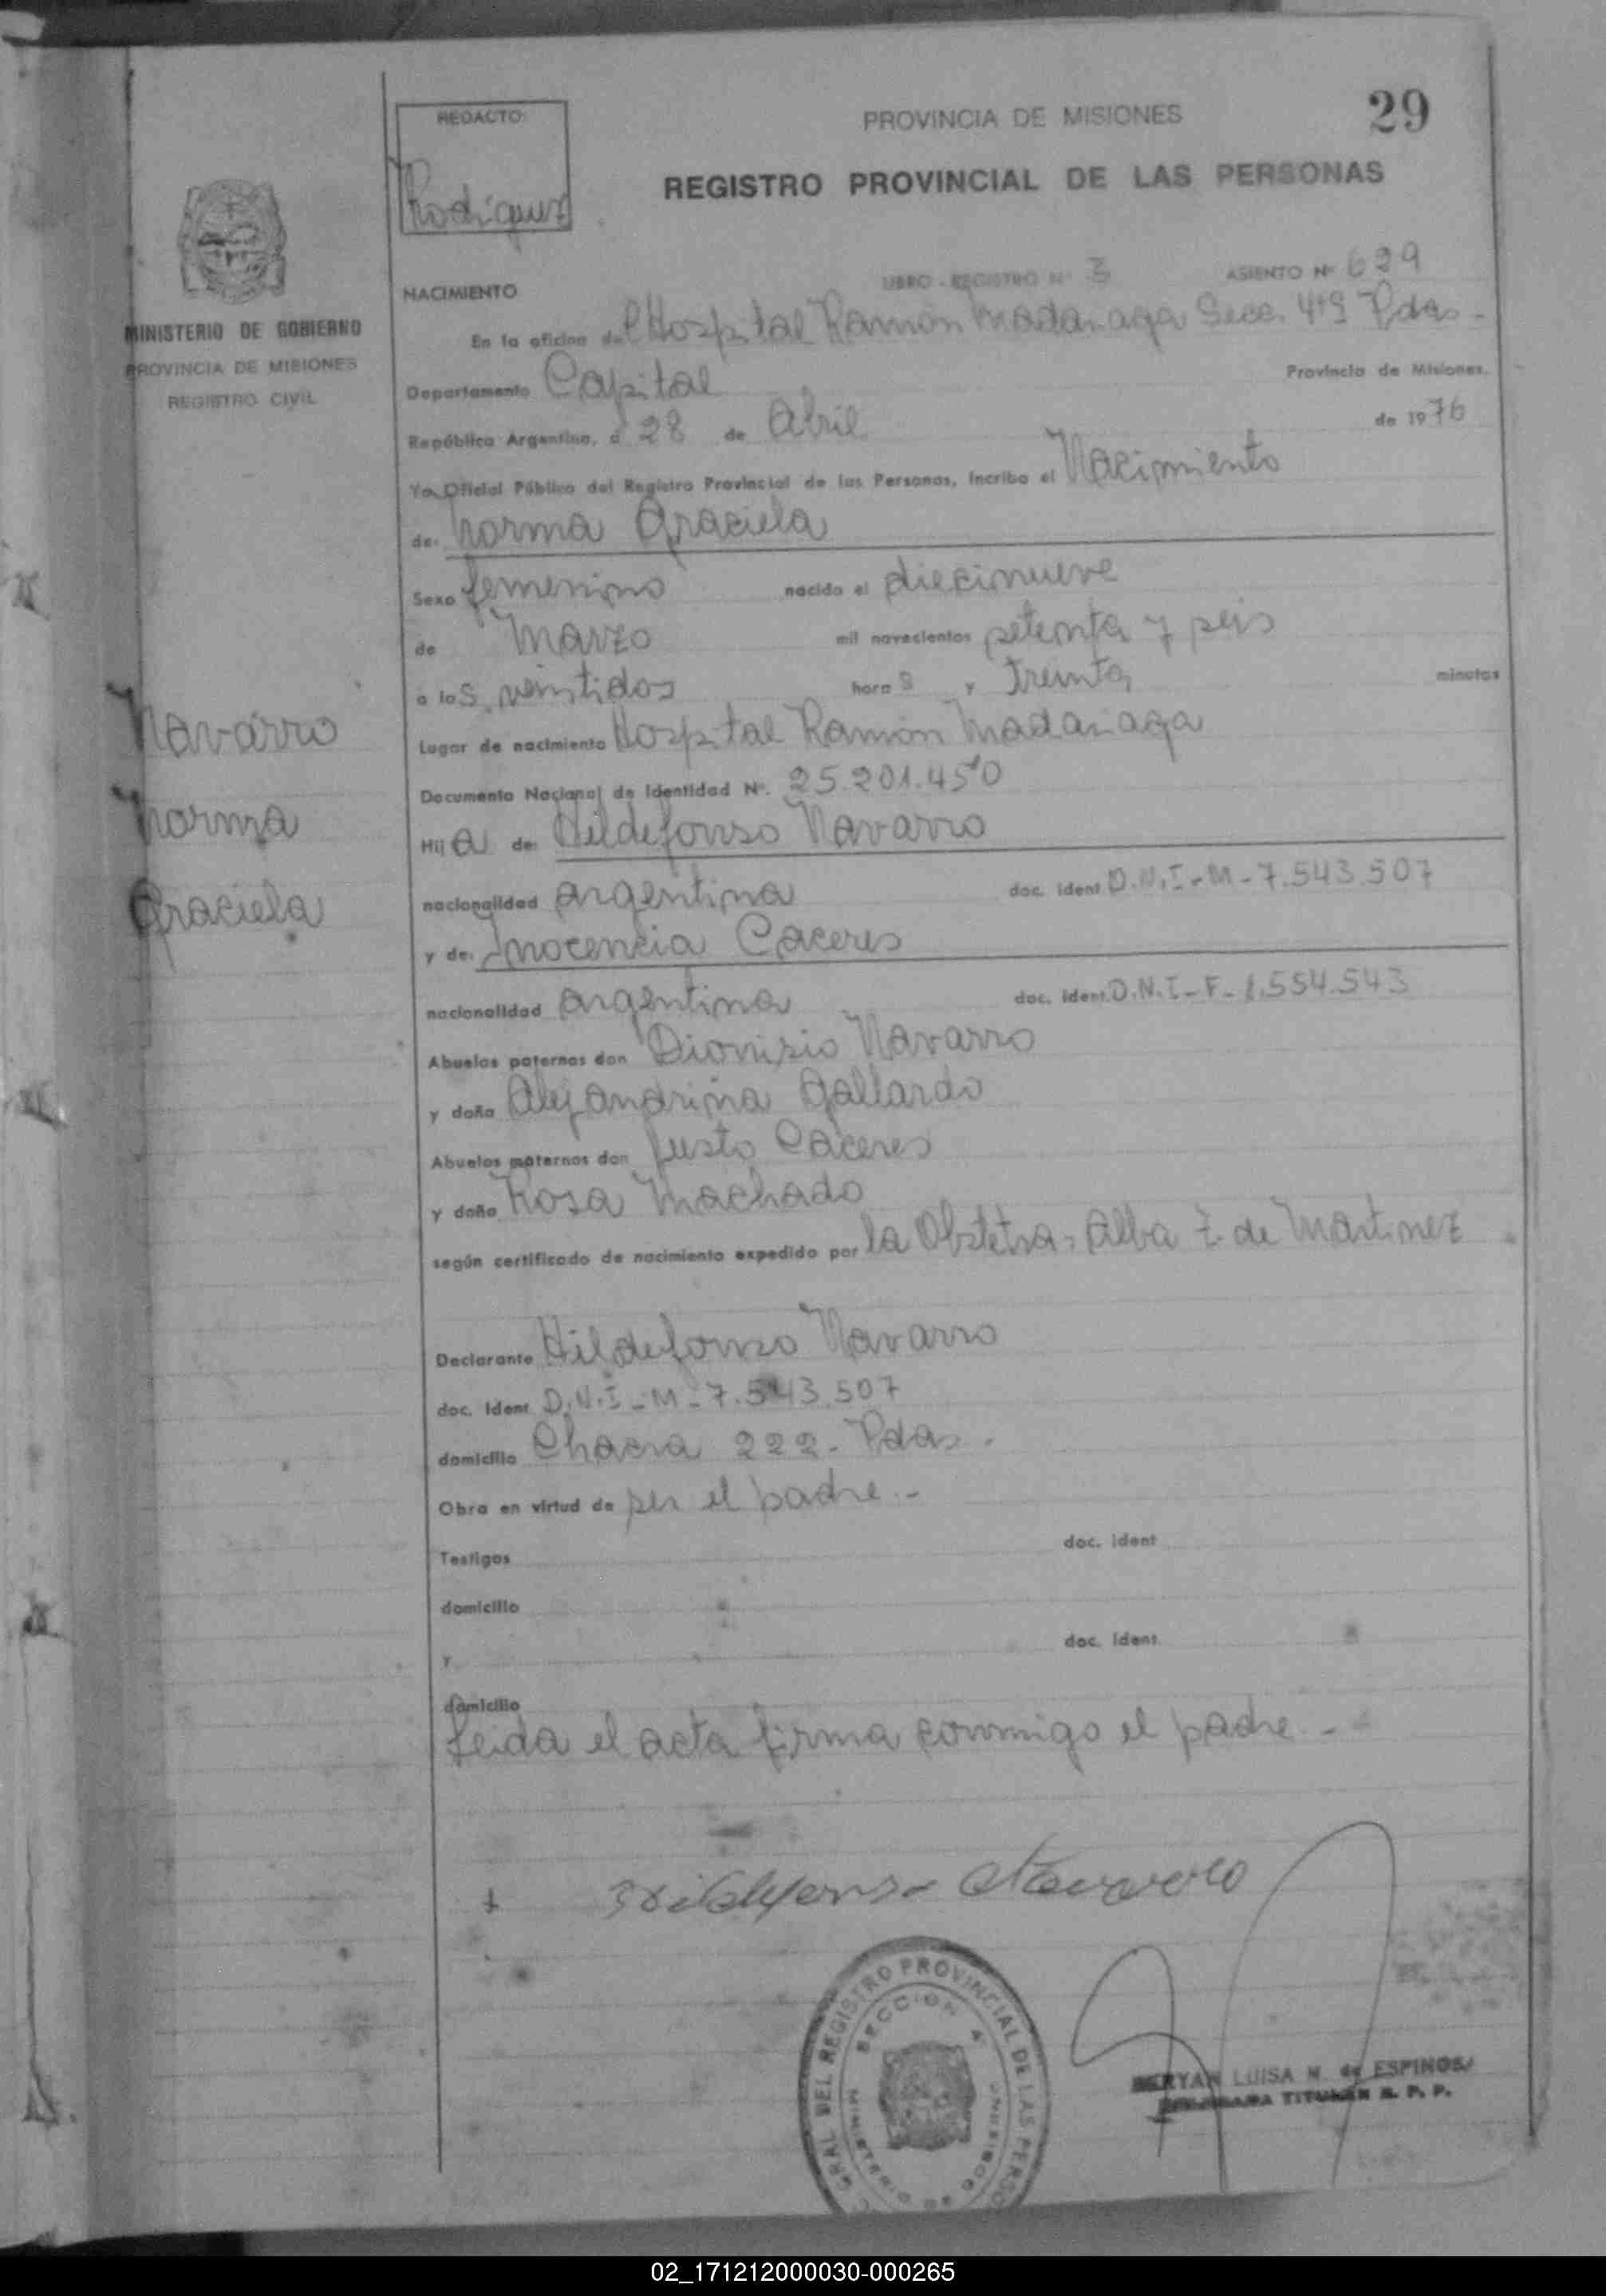 29
REDACTO:
Rodriguez
PROVINCIA DE MISIONES
REGISTRO PROVINCIAL DE LAS PERSONAS
MINISTERIO DE GOBIERNO
PROVINCIA DE MISIONES
REGISTRO CIVIL
NACIMIENTO
LIBRO - REGISTRO Nº 3 ASIENTO Nº 629
En la oficina del Hospital Ramón Madariaga Secc. 4ta Pdas -
Departamento Capital Provincia de Misiones,
República Argentina, a 28 de Abril de 1976
Yo, Oficial Público del Registro Provincial de las Personas, incribo el Nacimiento
de: Norma Graciela
Sexo femenino nacido el diecinueve
de Marzo mil novecientos setenta y seis
a las veintidos horas y Treinta minutos
Lugar de nacimiento Hospital Ramón Madariaga
Documento Nacional de Identidad Nº. 25.201.450
Hija de: Hildefonso Navarro
nacionalidad argentina doc. ident D.N.I-M-7.543.507
y de: Inocencia Caceres
nacionalidad argentina doc. ident. D.N.I-F-1.554.543
Abuelos paternos don Dionisio Navarro
y doña Alejandrina Gallardo
Abuelos maternos don Justo Caceres
y doña Rosa Machado
según certificado de nacimiento expedido por la Obstetra, Alba Z. de Martinez
Navarro
Norma
Graciela
Declarante Hildefonso Navarro
doc. ident D.N.I-M-7.543.507
domicilio Chacra 222 - Pdas.
Obra en virtud de ser el padre.-
Testigos doc. ident
domicilio
y doc. ident.
domicilio
Leida el acta firma conmigo el padre.-
Hildefonso Navarro
GRAL. DEL REGISTRO PROVINCIAL DE LAS PERSO
SECCION 4
LUISA N. de ESPINOSA
TITULAR R. P. P.
02_171212000030-000265